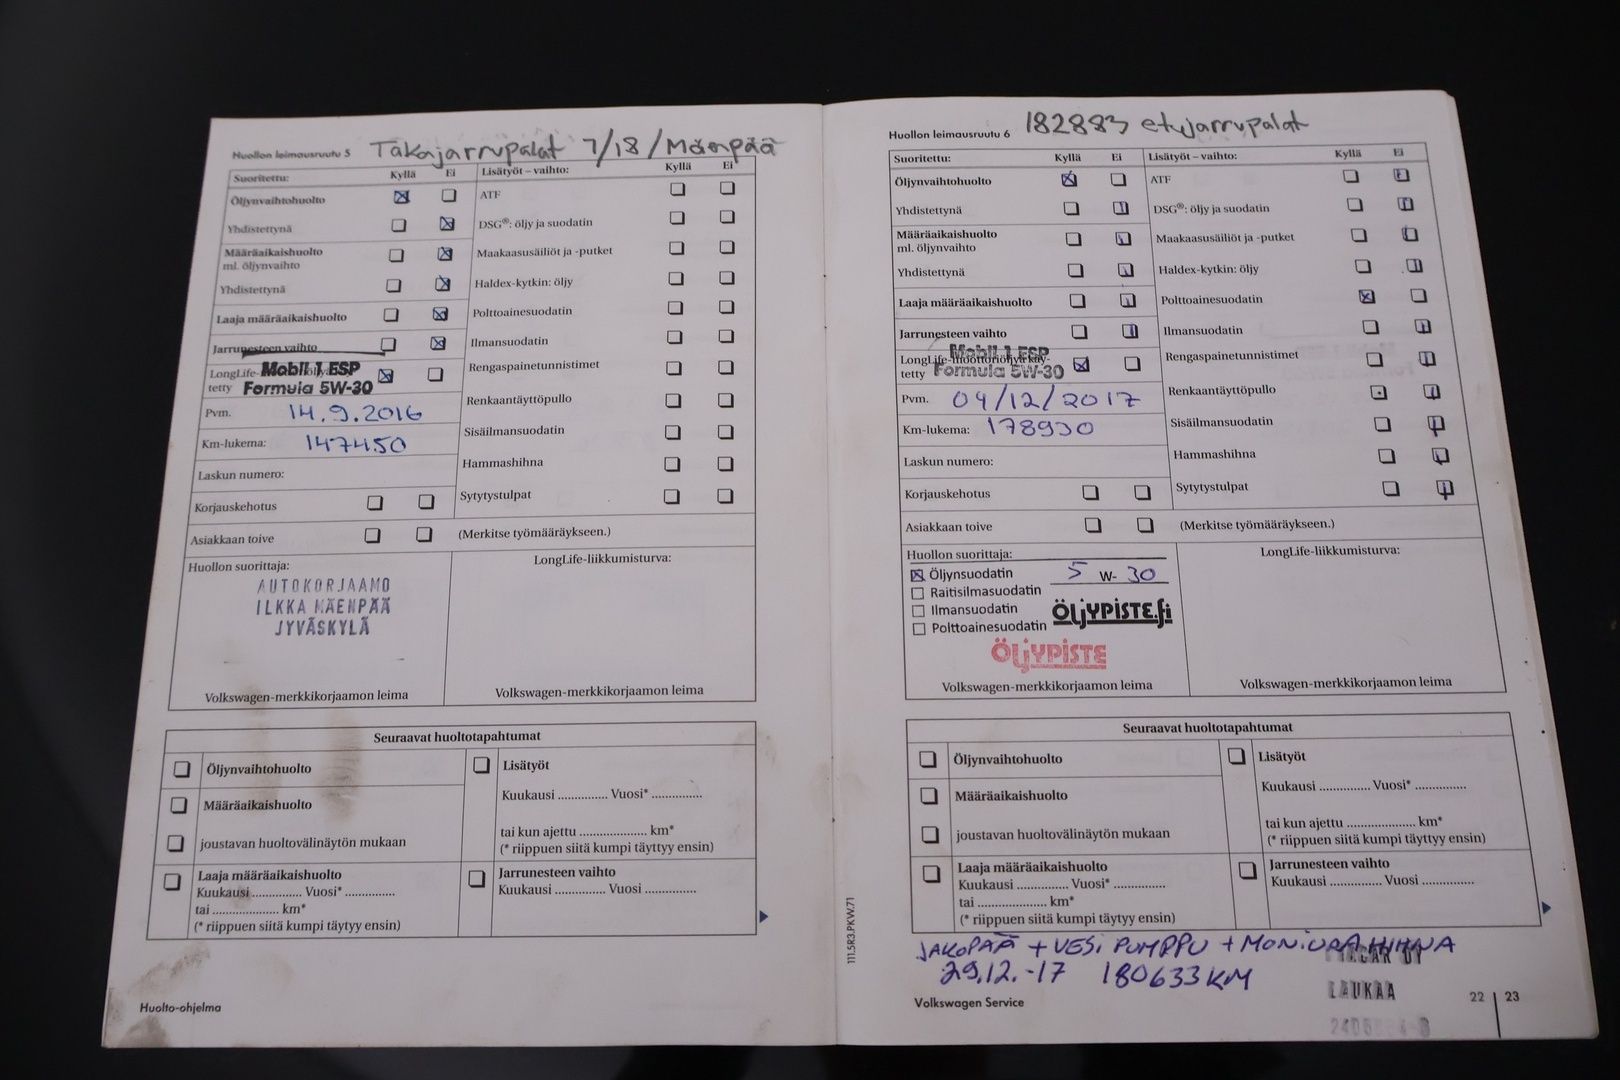 Huollon leimausruutu 5 Takajarrupalat 7/18/Mäenpää
Suoritettu: Kyllä Ei Lisätyöt – vaihto: Kyllä Ei
Öljynvaihtohuolto ATF
Yhdistettynä DSG®: öljy ja suodatin
Määräaikaishuolto Maakaasusäiliöt ja -putket
ml. öljynvaihto
Yhdistettynä Haldex-kytkin: öljy
Laaja määräaikaishuolto Polttoainesuodatin
Jarrunesteen vaihto Ilmansuodatin
LongLife- Mobil 1 ESP Rengaspainetunnistimet
tetty Formula 5W-30
Pvm. 14.9.2016 Renkaantäyttöpullo
Km-lukema: 147450 Sisäilmansuodatin
Laskun numero: Hammashihna
Korjauskehotus Sytytystulpat
Asiakkaan toive (Merkitse työmääräykseen.)
Huollon suorittaja: LongLife-liikkumisturva:
AUTOKORJAAMO
ILKKA MÄENPÄÄ
JYVÄSKYLÄ
Volkswagen-merkkikorjaamon leima Volkswagen-merkkikorjaamon leima
Seuraavat huoltotapahtumat
Öljynvaihtohuolto Lisätyöt
Määräaikaishuolto Kuukausi .............. Vuosi* ..............
joustavan huoltovälinäytön mukaan tai kun ajettu ................... km*
(* riippuen siitä kumpi täyttyy ensin)
Laaja määräaikaishuolto Jarrunesteen vaihto
Kuukausi .............. Vuosi* .............. Kuukausi .............. Vuosi ..............
tai ................... km*
(* riippuen siitä kumpi täytyy ensin)
Huolto-ohjelma
111.5R3.PKW.71
Huollon leimausruutu 6 182883 etujarrupalat
Suoritettu: Kyllä Ei Lisätyöt – vaihto: Kyllä Ei
Öljynvaihtohuolto ATF
Yhdistettynä DSG®: öljy ja suodatin
Määräaikaishuolto Maakaasusäiliöt ja -putket
ml. öljynvaihto
Yhdistettynä Haldex-kytkin: öljy
Laaja määräaikaishuolto Polttoainesuodatin
Jarrunesteen vaihto Ilmansuodatin
LongLife-moottoriöljyä käy- Mobil 1 ESP Rengaspainetunnistimet
tetty Formula 5W-30
Pvm. 04/12/2017 Renkaantäyttöpullo
Km-lukema: 178930 Sisäilmansuodatin
Laskun numero: Hammashihna
Korjauskehotus Sytytystulpat
Asiakkaan toive (Merkitse työmääräykseen.)
Huollon suorittaja: LongLife-liikkumisturva:
Öljynsuodatin 5 W- 30
Raitisilmasuodatin
Ilmansuodatin ÖLJYPISTE.fi
Polttoainesuodatin
ÖLJYPISTE
Volkswagen-merkkikorjaamon leima Volkswagen-merkkikorjaamon leima
Seuraavat huoltotapahtumat
Öljynvaihtohuolto Lisätyöt
Määräaikaishuolto Kuukausi .............. Vuosi* ..............
joustavan huoltovälinäytön mukaan tai kun ajettu ................... km*
(* riippuen siitä kumpi täyttyy ensin)
Laaja määräaikaishuolto Jarrunesteen vaihto
Kuukausi .............. Vuosi* .............. Kuukausi .............. Vuosi ..............
tai ................... km*
(* riippuen siitä kumpi täytyy ensin)
JAKOPÄÄ + VESI PUMPPU + MONIURAHIHNA
29.12.-17 180633 KM
LAUKAA
Volkswagen Service 22 23